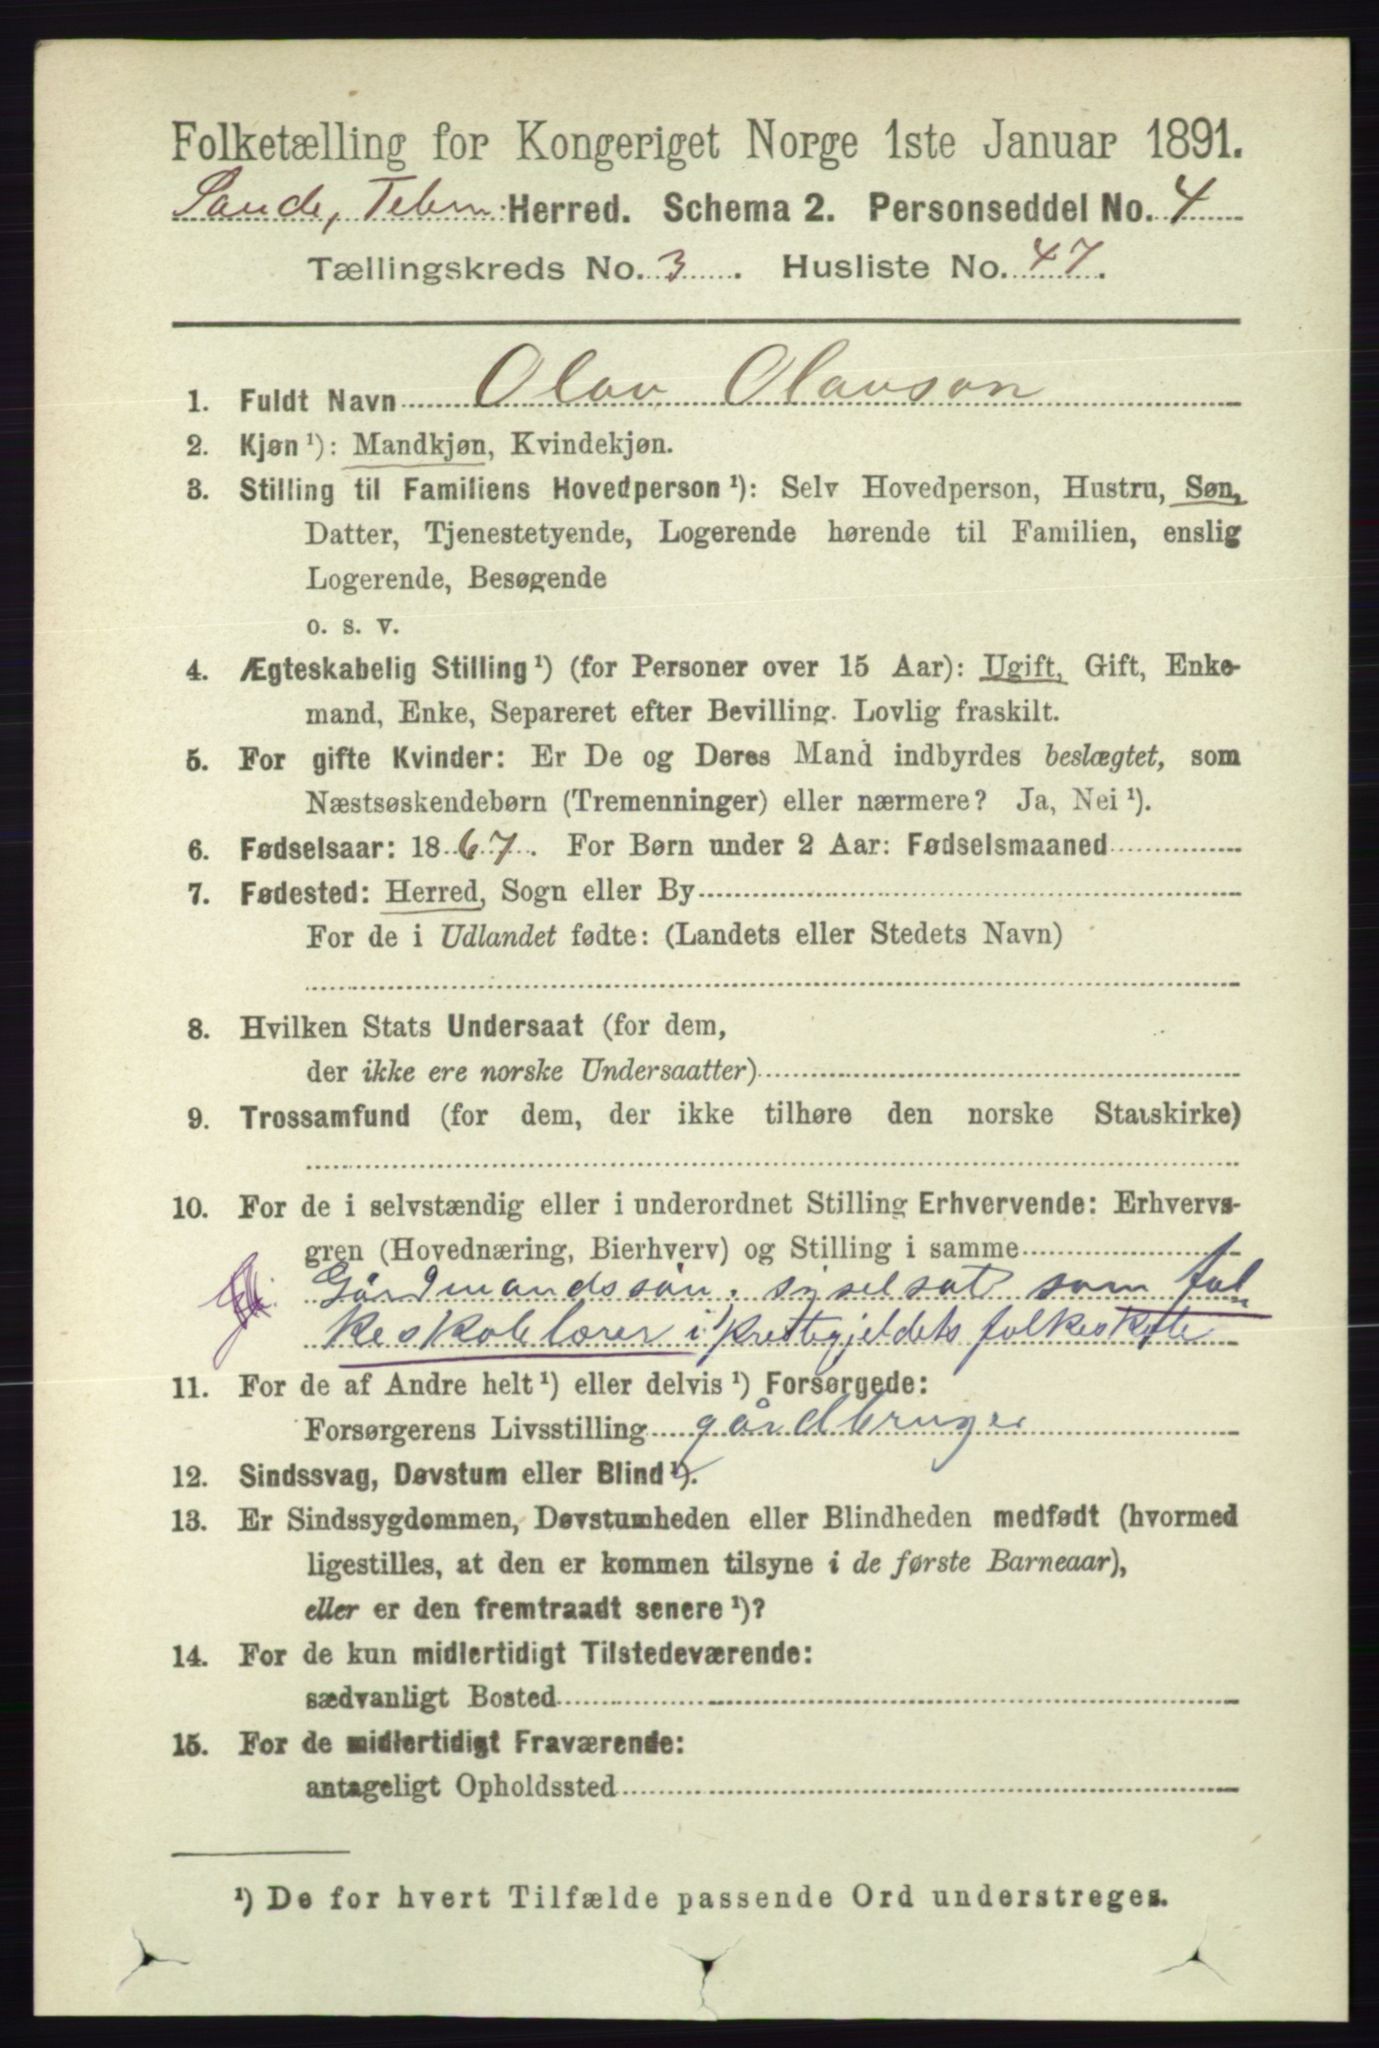 Folketælling for Kongeriget Norge 1ste Januar 1891.
Saude, Telem. Herred. Schema 2. Personseddel No. 4
Tællingskreds No. 3. Husliste No. 47.
1. Fuldt Navn Olav Olavson
2. Kjøn ¹): Mandkjøn, Kvindekjøn.
3. Stilling til Familiens Hovedperson ¹): Selv Hovedperson, Hustru, Søn,
Datter, Tjenestetyende, Logerende hørende til Familien, enslig
Logerende, Besøgende
o. s. v.
4. Ægteskabelig Stilling ¹) (for Personer over 15 Aar): Ugift, Gift, Enke-
mand, Enke, Separeret efter Bevilling. Lovlig fraskilt.
5. For gifte Kvinder: Er De og Deres Mand indbyrdes beslægtet, som
Næstsøskendebørn (Tremenninger) eller nærmere? Ja, Nei ¹).
6. Fødselsaar: 1867. For Børn under 2 Aar: Fødselsmaaned
7. Fødested: Herred, Sogn eller By
For de i Udlandet fødte: (Landets eller Stedets Navn)
8. Hvilken Stats Undersaat (for dem,
der ikke ere norske Undersaatter)
9. Trossamfund (for dem, der ikke tilhøre den norske Statskirke)
10. For de i selvstændig eller i underordnet Stilling Erhvervende: Erhvervs-
gren (Hovednæring, Bierhverv) og Stilling i samme
Gårdmandssøn, syselsat som fol
keskolelærer i Prestegjeldets folkeskole
11. For de af Andre helt ¹) eller delvis ¹) Forsørgede:
Forsørgerens Livsstilling gårdbruger
12. Sindssvag, Døvstum eller Blind ¹).
13. Er Sindssygdommen, Døvstumheden eller Blindheden medfødt (hvormed
ligestilles, at den er kommen tilsyne i de første Barneaar),
eller er den fremtraadt senere ¹)?
14. For de kun midlertidigt Tilstedeværende:
sædvanligt Bosted
15. For de midlertidigt Fraværende:
antageligt Opholdssted
¹) De for hvert Tilfælde passende Ord understreges.